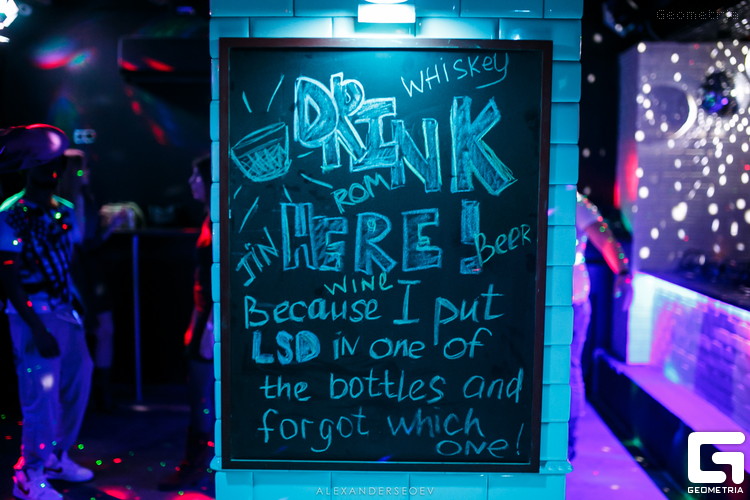 Geometria
WHISKEY
DRINK
ROM
HERE!
JIN
Beer
WINE
Because I put
LSD iN one of
the bottles and
forgot which
one!
ALEXANDERSEOEV
GEOMETRIA